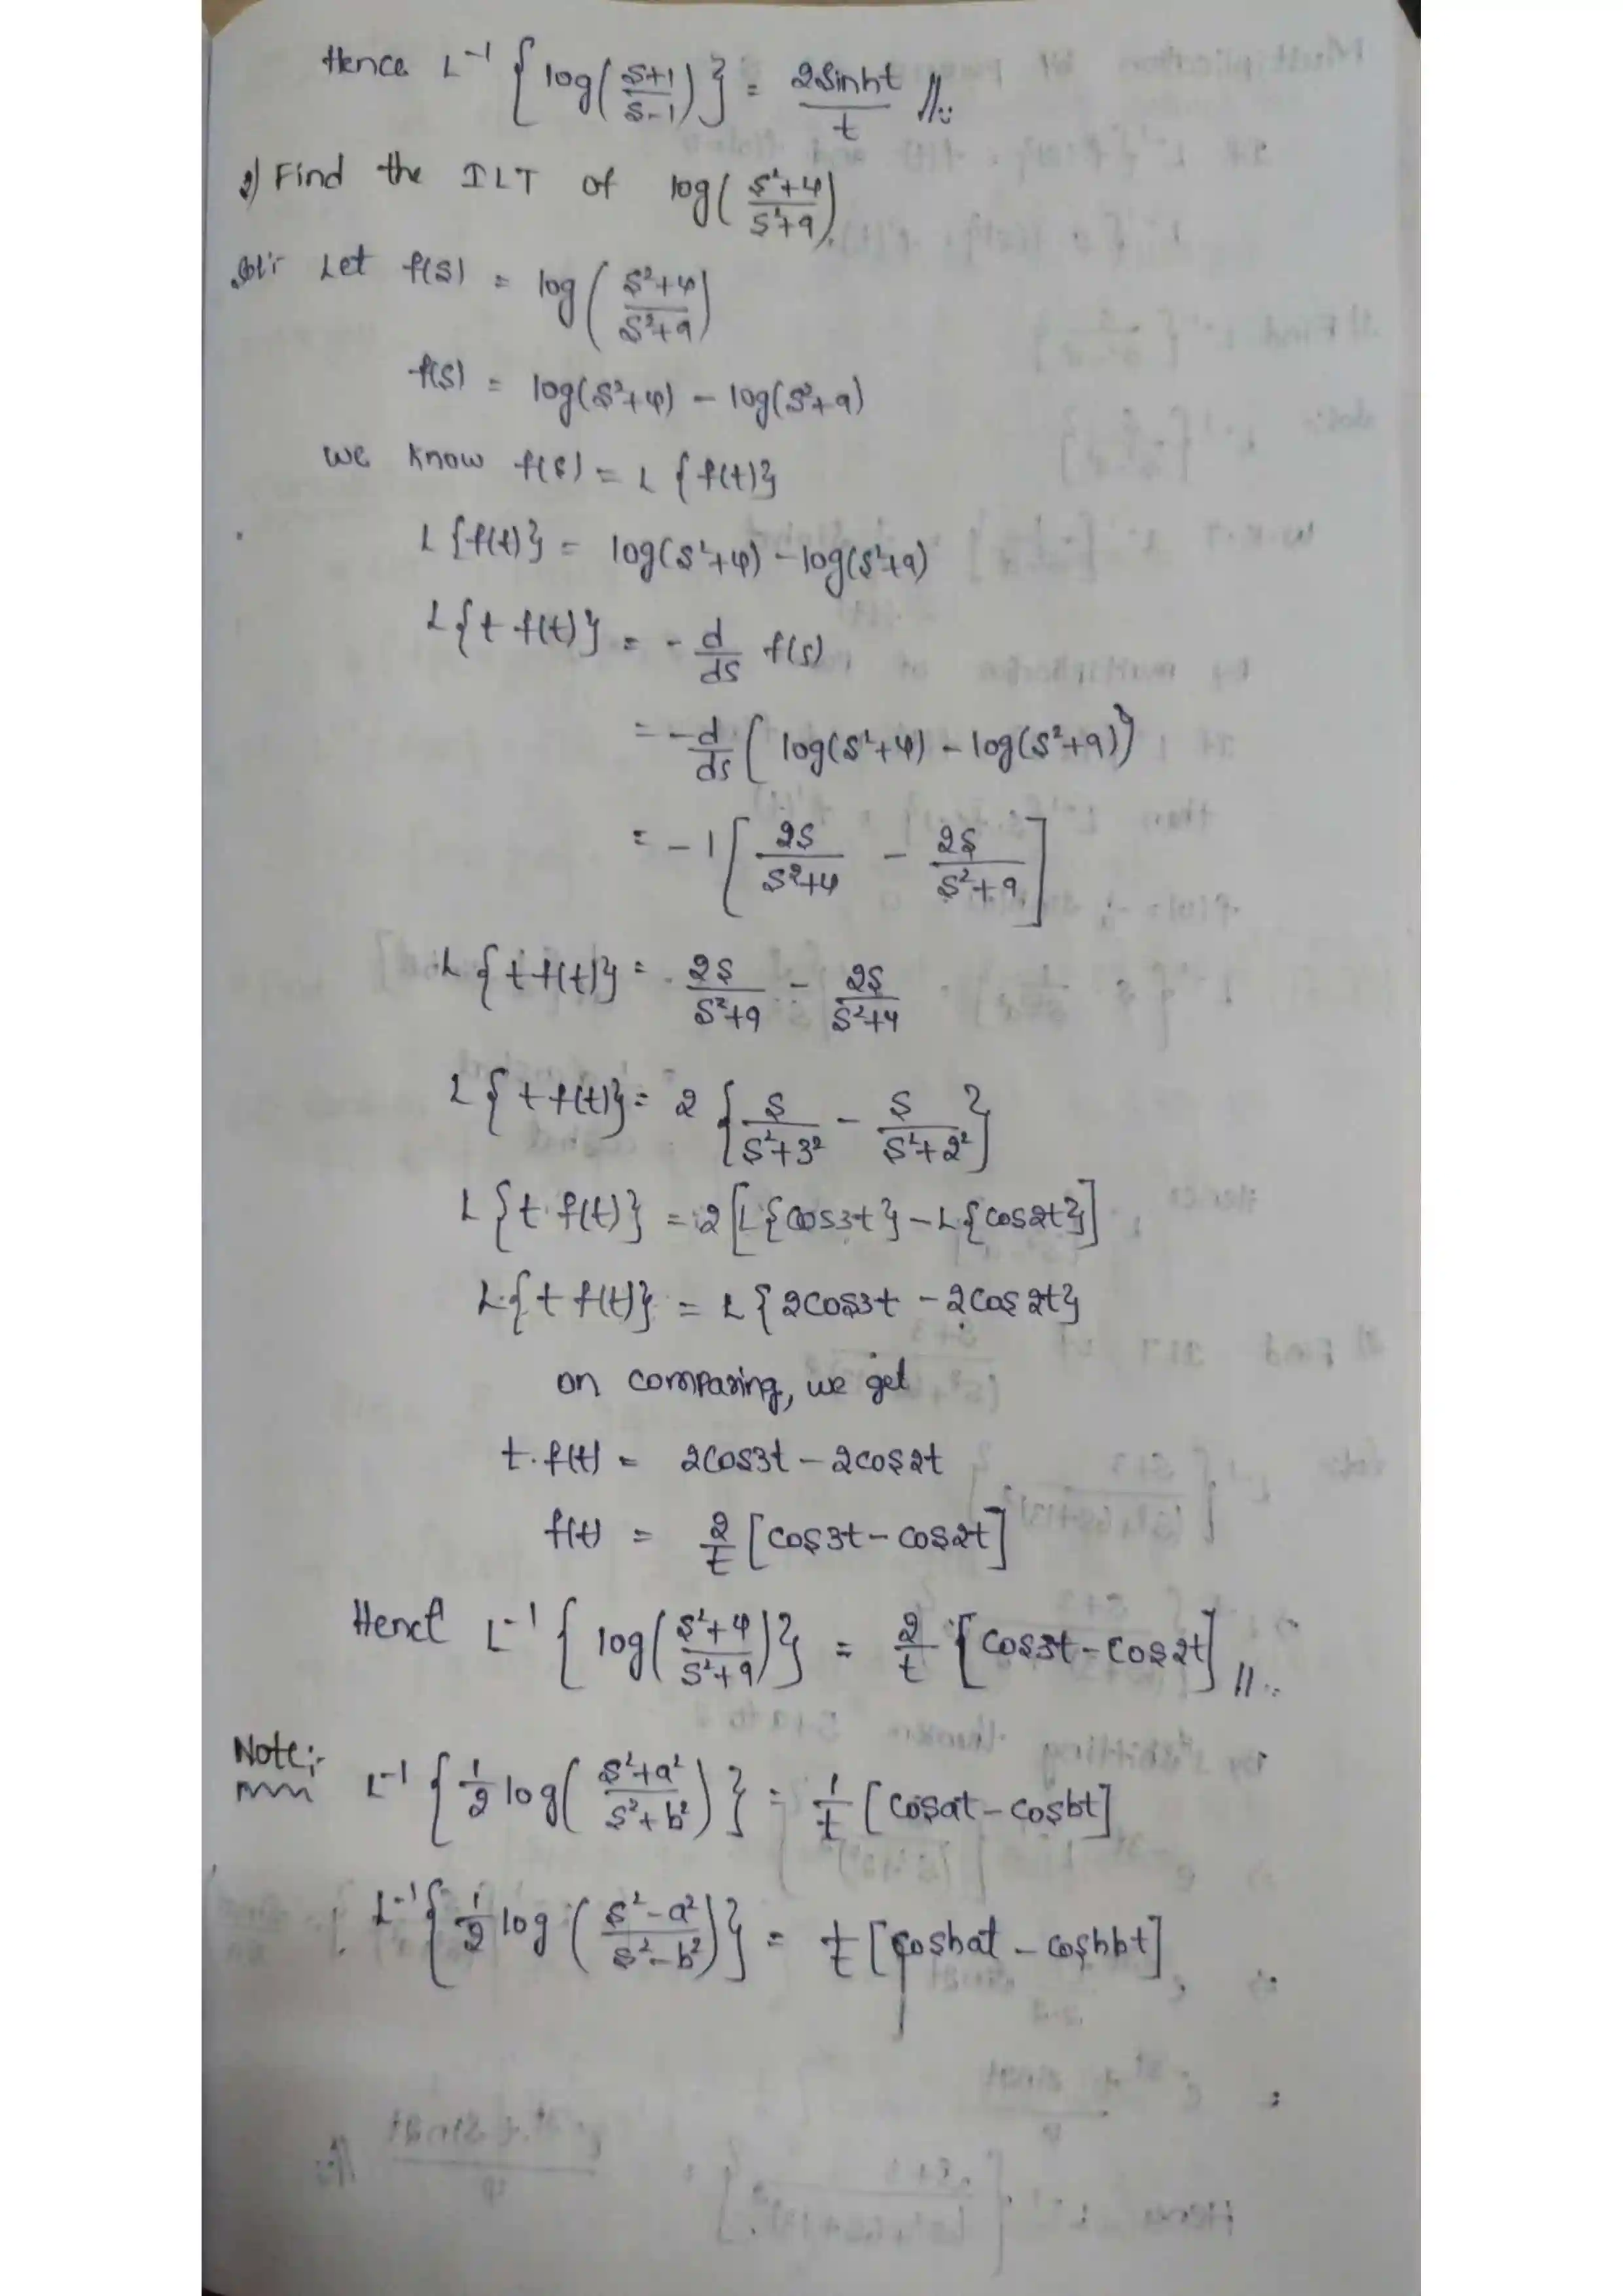 Hence L⁻¹ { log( (s+1)/(s-1) ) } = 2sinht / t //
2) Find the ILT of log( (s²+4)/(s²+9) )
Sol:- Let f(s) = log( (s²+4)/(s²+9) )
f(s) = log(s²+4) - log(s²+9)
we know f(s) = L { f(t) }
L {f(t)} = log(s²+4) - log(s²+9)
L {t f(t)} = - d/ds f(s)
= - d/ds ( log(s²+4) - log(s²+9) )
= -1 [ 2s/(s²+4) - 2s/(s²+9) ]
L { t f(t)} = 2s/(s²+9) - 2s/(s²+4)
L { t f(t)} = 2 { s/(s²+3²) - s/(s²+2²) }
L { t. f(t)} = 2 [L{cos3t} - L{cos2t}]
L { t f(t)} = L { 2cos3t - 2cos2t}
on comparing, we get
t. f(t) = 2cos3t - 2cos2t
f(t) = 2/t [cos3t - cos2t]
Hence L⁻¹ { log( (s²+4)/(s²+9) ) } = 2/t [cos3t - cos2t] //
Note:-
L⁻¹ { 1/2 log( (s²+a²)/(s²+b²) ) } = 1/t [cosat - cosbt]
L⁻¹ { 1/2 log( (s²-a²)/(s²-b²) ) } = t [coshat - coshbt]